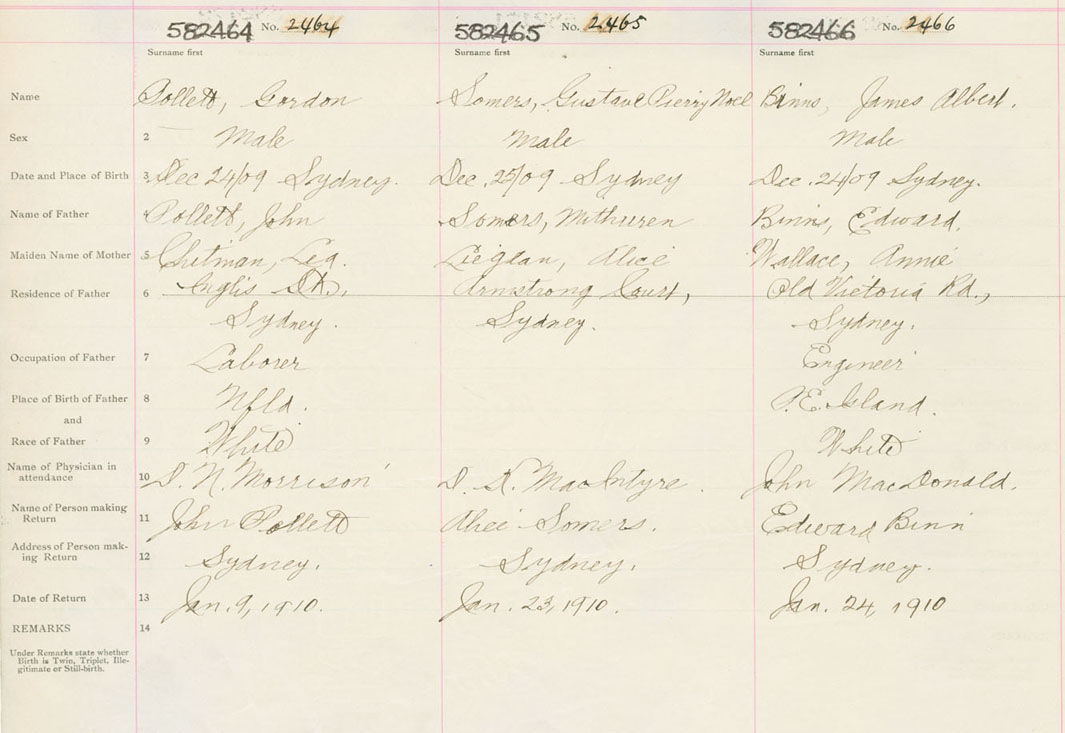 582464 No. 2464 582465 No. 2465 582466 No. 2466
Surname first Surname first Surname first
Name Pollett, Gordon Somers, Gustave Pierry Noel Binns, James Albert.
Sex 2 Male Male Male
Date and Place of Birth 3 Dec 24/09 Sydney. Dec. 25/09 Sydney Dec. 24/09 Sydney.
Name of Father Pollett, John Somers, Binns, Edward.
Maiden Name of Mother 5 Chitman, Alice Wallace, Annie
Residence of Father 6 Inglis St., Armstrong Court, Old Victoria Rd.,
Sydney. Sydney. Sydney.
Occupation of Father 7 Laborer Engineer
Place of Birth of Father 8 Nfld. P.E. Island.
and
Race of Father 9 White White
Name of Physician in
attendance 10 D. N. Morrison D. K. MacIntyre. John MacDonald.
Name of Person making
Return 11 John Pollett Alice Somers. Edward Binn
Address of Person mak-
ing Return 12 Sydney. Sydney. Sydney.
Date of Return 13 Jan. 9, 1910. Jan. 23, 1910. Jan. 24, 1910
REMARKS 14
Under Remarks state whether
Birth is Twin, Triplet, Ille-
gitimate or Still-birth.